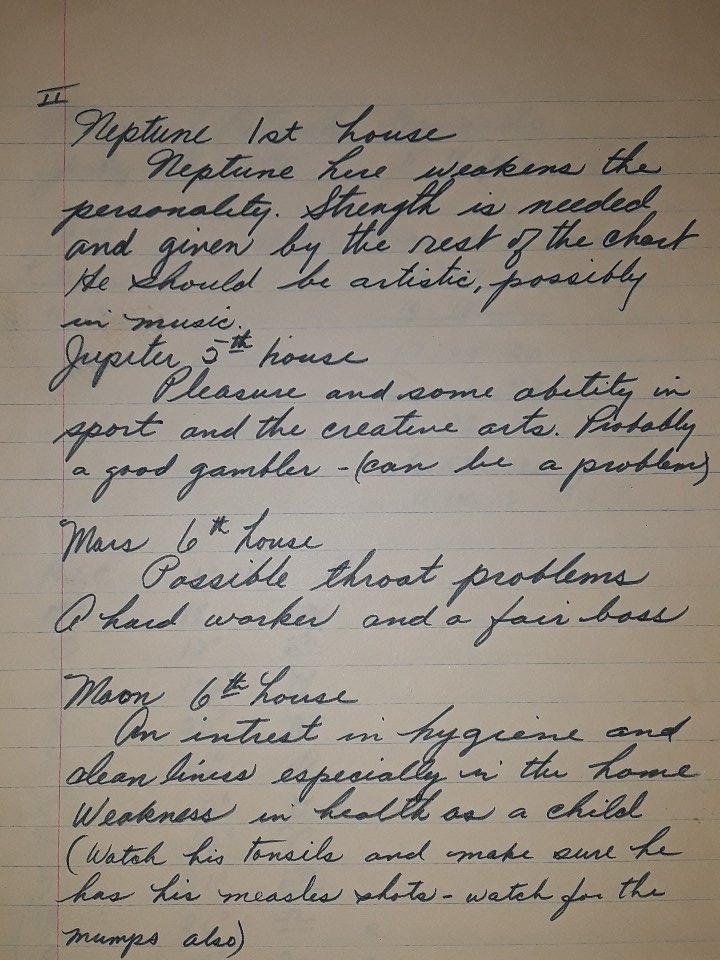 II
Neptune 1st house
Neptune here weakens the
personality. Strength is needed
and given by the rest of the chart
He should be artistic, possibly
in music.
Jupiter 5th house
Pleasure and some abitity in
sport and the creative arts. Probably
a good gambler - (can be a problem)
Mars 6th house
Possible throat problems
A hard worker and a fair boss
Moon 6th house
An intrest in hygiene and
cleanliness especially in the home
Weakness in health as a child
(Watch his tonsils and make sure he
has his measles shots - watch for the
mumps also)